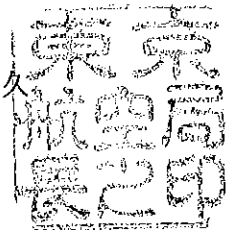 東京
航空局
長之印
久